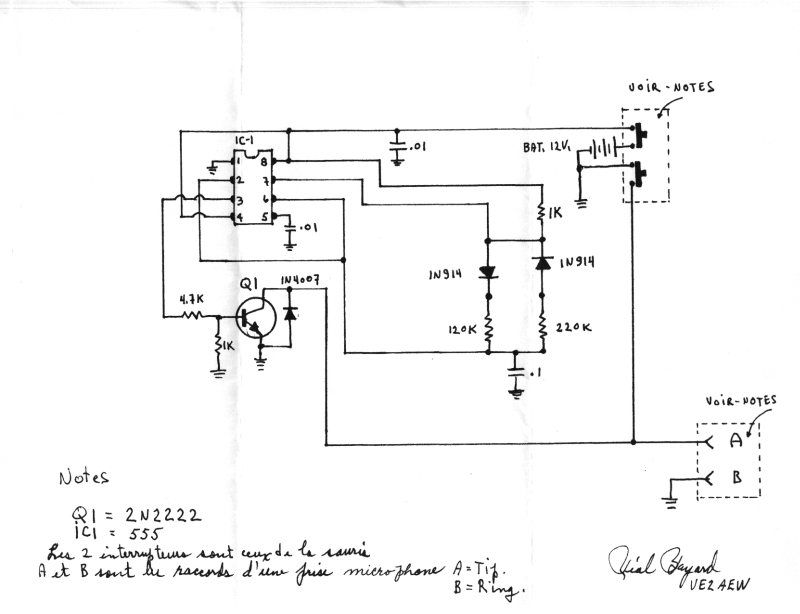 VOIR-NOTES
IC-1
.01
BAT. 12V.
1 8
2 7
3 6
4 5
.01
1K
Q1 1N4007
1N914 1N914
4.7K
120K 220K
1K
.1
VOIR-NOTES
A
B
Notes
Q1 = 2N2222
IC1 = 555
Les 2 interrupteurs sont ceux de la souris
A et B sont les raccords d'une prise microphone A = Tip.
B = Ring.
VE2AEW